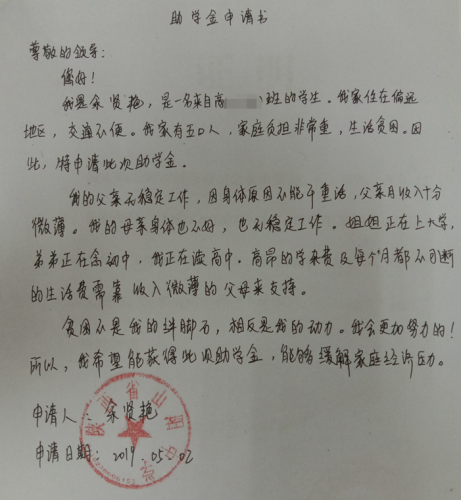 助学金申请书
尊敬的领导:
您好!
我是余贤艳,是一名来自高 班的学生。我家住在偏远
地区,交通不便。我家有五口人,家庭负担非常重,生活贫困。因
此,特申请此次助学金。
我的父亲无稳定工作,因身体原因不能干重活,父亲月收入十分
微薄。我的母亲身体也不好,也无稳定工作。姐姐正在上大学,
弟弟正在念初中,我正在读高中。高昂的学杂费及每个月都不可断
的生活费需靠收入微薄的父母来支持。
贫困不是我的绊脚石,相反是我的动力。我会更加努力的!
所以,我希望能获得此次助学金,能够缓解家庭经济压力。
申请人:余贤艳
申请日期:2019.05.02
陕西省山阳中学